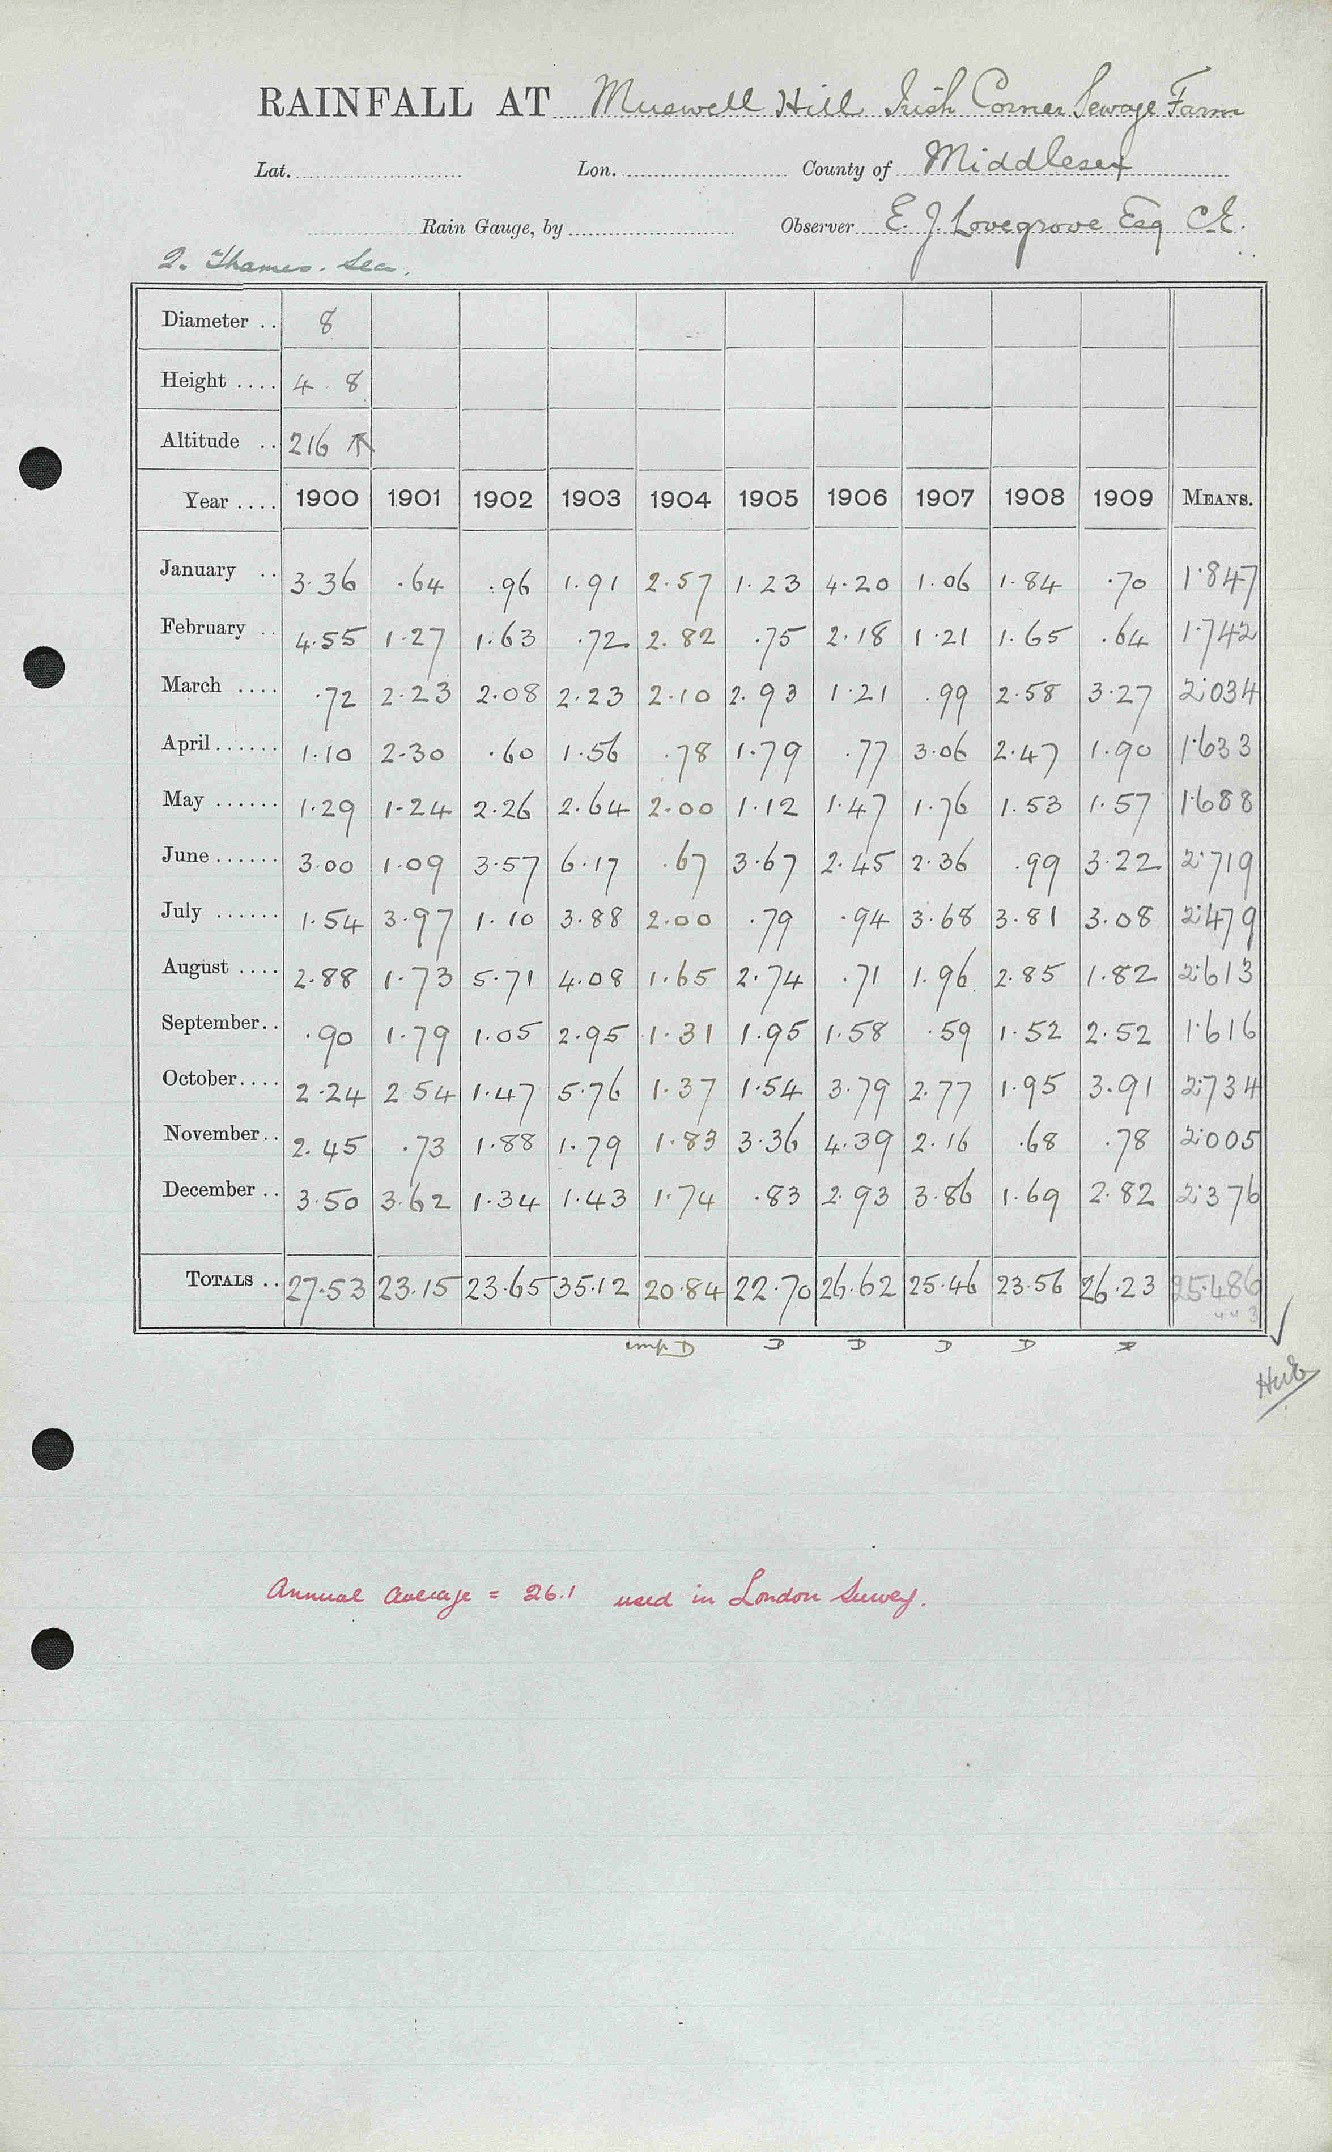 RAINFALL AT Muswell Hill Irish Corner Sewage Farm
Lat. Lon. County of Middlesex
Rain Gauge, by Observer E. J. Lovegrove Esq C.E.
2. Thames. Sea.
Diameter .. 8
Height .... 4 . 8
Altitude .. 216
Year .... 1900 1901 1902 1903 1904 1905 1906 1907 1908 1909 MEANS.
January .. 3.36 .64 .96 1.91 2.57 1.23 4.20 1.06 1.84 .70 1.847
February .. 4.55 1.27 1.63 .72 2.82 .75 2.18 1.21 1.65 .64 1.742
March .... .72 2.23 2.08 2.23 2.10 2.93 1.21 .99 2.58 3.27 2.034
April ...... 1.10 2.30 .60 1.56 .78 1.79 .77 3.06 2.47 1.90 1.633
May ...... 1.29 1.24 2.26 2.64 2.00 1.12 1.47 1.76 1.53 1.57 1.688
June ...... 3.00 1.09 3.57 6.17 .67 3.67 2.45 2.36 .99 3.22 2.719
July ...... 1.54 3.97 1.10 3.88 2.00 .79 .94 3.68 3.81 3.08 2.479
August .... 2.88 1.73 5.71 4.08 1.65 2.74 .71 1.96 2.85 1.82 2.613
September .. .90 1.79 1.05 2.95 1.31 1.95 1.58 .59 1.52 2.52 1.616
October .... 2.24 2.54 1.47 5.76 1.37 1.54 3.79 2.77 1.95 3.91 2.734
November .. 2.45 .73 1.88 1.79 1.83 3.36 4.39 2.16 .68 .78 2.005
December .. 3.50 3.62 1.34 1.43 1.74 .83 2.93 3.86 1.69 2.82 2.376
TOTALS .. 27.53 23.15 23.65 35.12 20.84 22.70 26.62 25.46 23.56 26.23 25.486
D D D D D
Annual average = 26.1 used in London Survey.